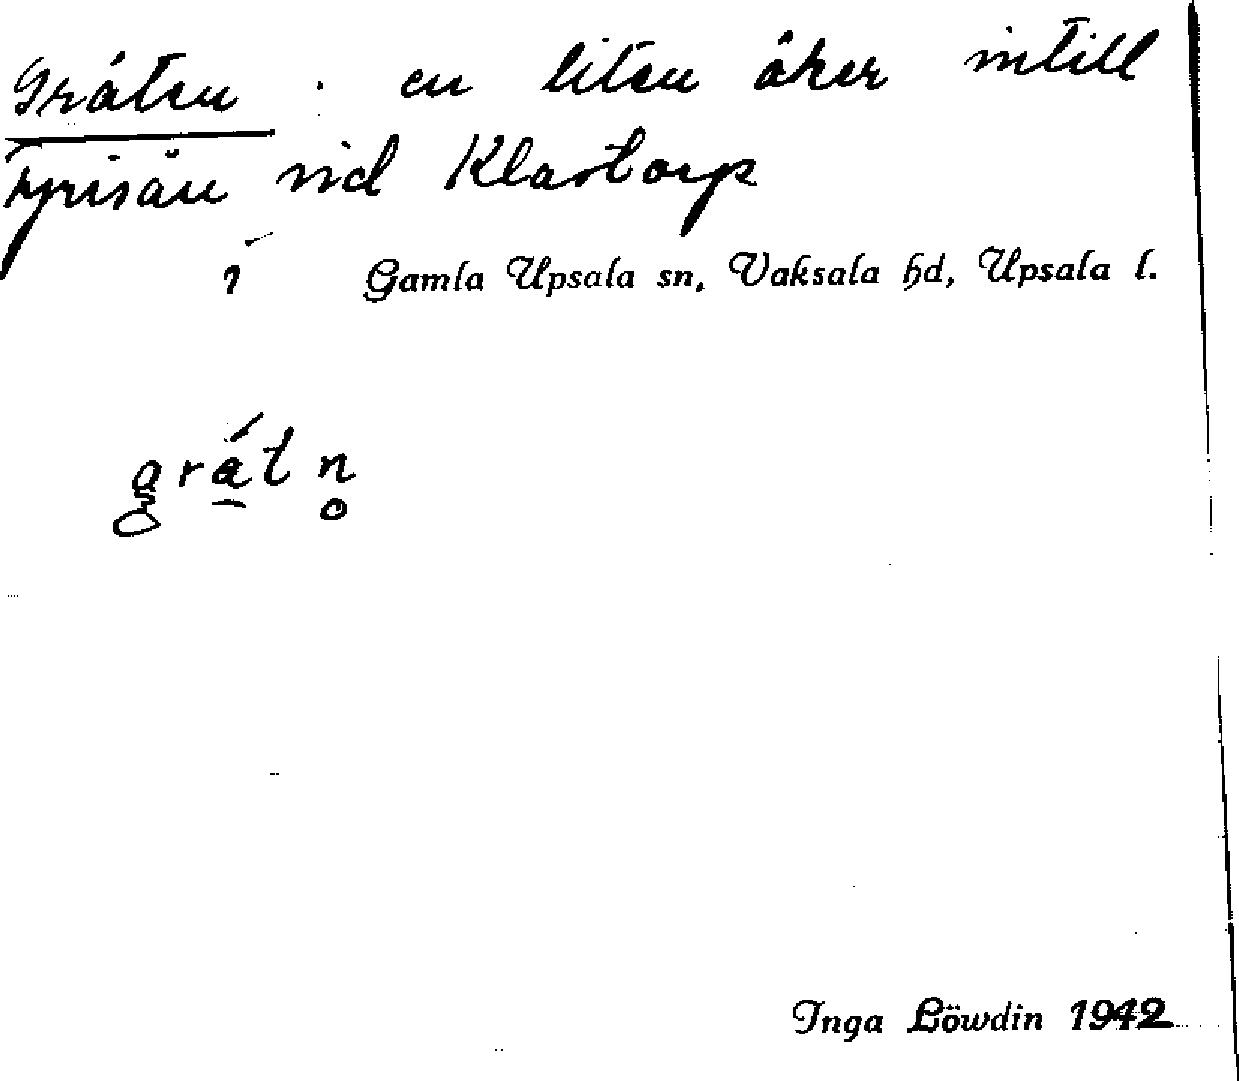 Gråten : en liten åker intill
Fyrisån vid Klastorp
i Gamla Upsala sn, Vaksala hd, Upsala l.
gråtn̥
Inga Löwdin 1942